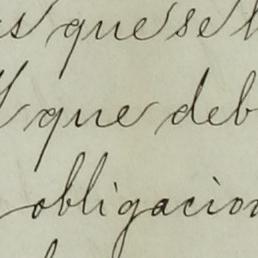 que se
que deb
obligacion